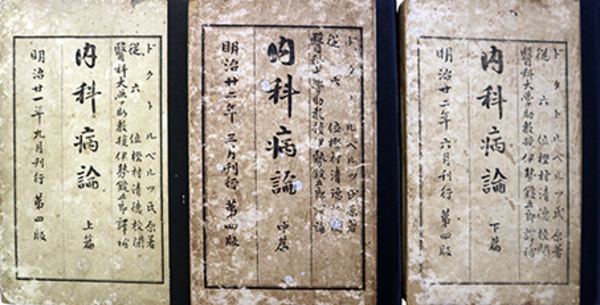 ドクトルベルツ氏原著
従六位樫村清徳校閲
醫科大學助教授伊勢錠五郎譯補
内科病論 上篇
明治廿一年九月刊行 第四版
ドクトルベルツ氏原著
従六位樫村清徳校閲
醫科大學助教授伊勢錠五郎譯補
内科病論 中篇
明治廿二年三月刊行 第四版
ドクトルベルツ氏原著
従六位樫村清徳校閲
醫科大學助教授伊勢錠五郎譯補
内科病論 下篇
明治廿二年六月刊行 第四版